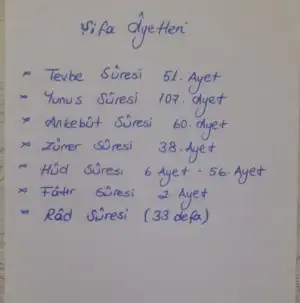 Şifa Âyetleri
Tevbe Sûresi 51. Ayet
Yunus Sûresi 107. Âyet
Ankebût Sûresi 60. Âyet
Zümer Sûresi 38. Ayet
Hûd Sûresi 6 Ayet - 56. Ayet
Fâtır Sûresi 2. Ayet
Râd Sûresi (33 defa)